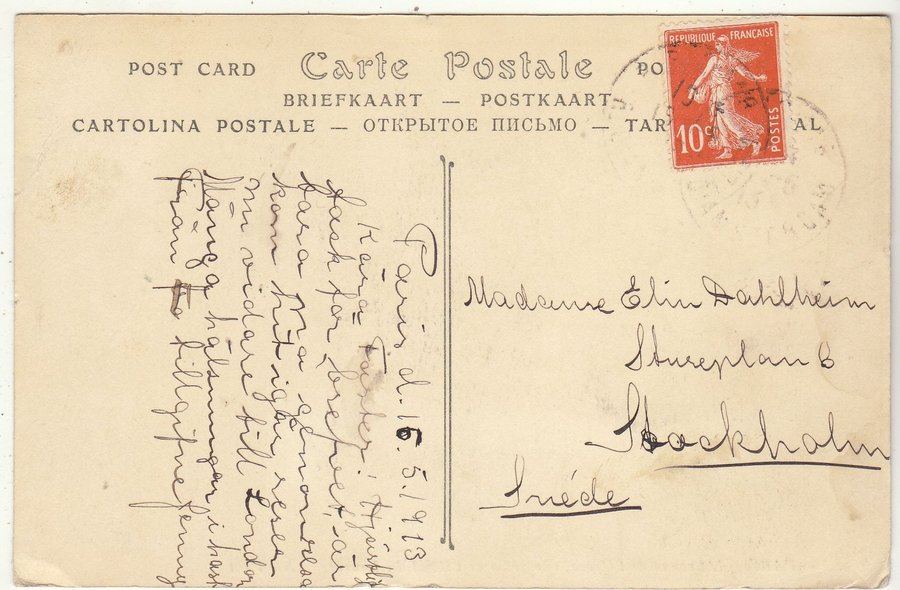 POST CARD Carte Postale PO
BRIEFKAART — POSTKAART
CARTOLINA POSTALE — ОТКРЫТОЕ ПИСЬМО — TAR AL
REPUBLIQUE FRANÇAISE
10c
POSTES
Paris d. 16. 5. 1913
Kära Faster! Hjärtligt
tack för brefvet, är
bara på genomresa
kom hit igår reser
nu vidare till London
Många hälsningar i hast
från tillgifne
Madame Elin Dahlheim
Stureplan 6
Stockholm
Suéde